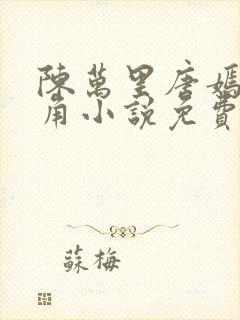 陳萬里唐嫣
角小說免費
蘇梅